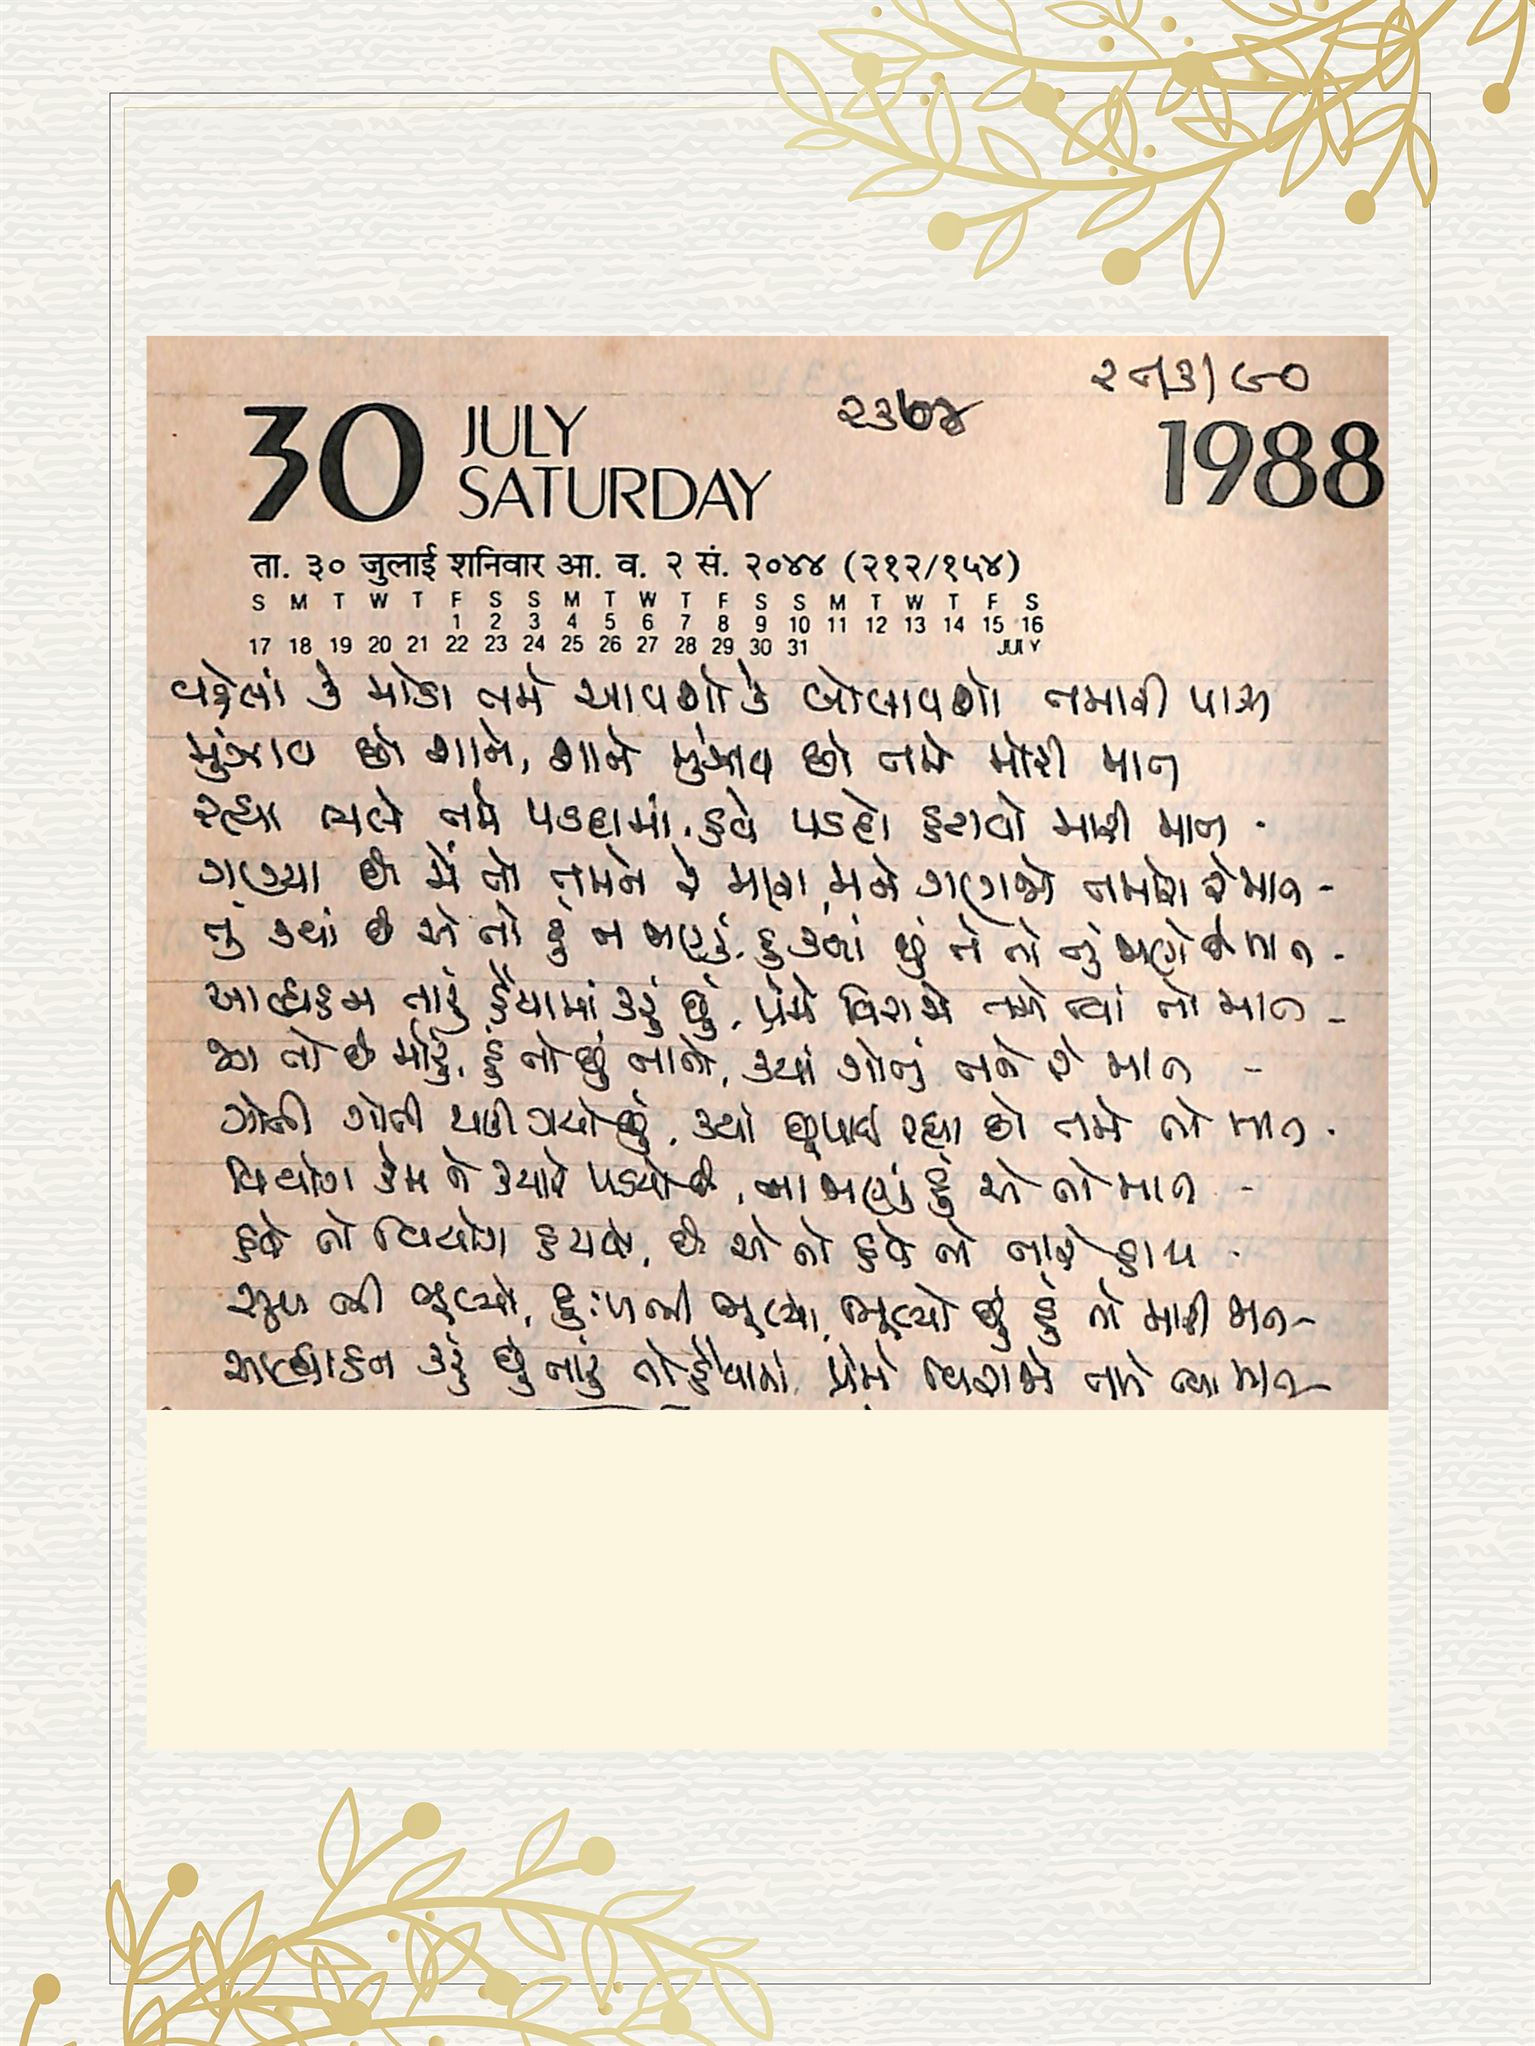 ૨૫/૩/૯૦
૨૩૭૪
30 JULY
SATURDAY
1988
ता. ३० जुलाई शनिवार आ. व. २ सं. २०४४ (२१२/१५४)
S M T W T F S S M T W T F S S M T W T F S
1 2 3 4 5 6 7 8 9 10 11 12 13 14 15 16
17 18 19 20 21 22 23 24 25 26 27 28 29 30 31 JULY
વહેલાં કે મોડા તમે આવશો કે બોલાવશો તમારી પાસ
મુંઝાવ છો શાને, શાને મુંઝાવ છો તમે મોરી માત
રહ્યા ભલે તમે પડદામાં, હવે પડદો હટાવો મારી માત
ગણ્યા છે મેં તો તમને રે મારા, મને ગણજો તમારો રે માત
તું ક્યાં છે એ તો હું ન જાણું, હું ક્યાં છું તે તો તું જાણે રે માત
આહ્વાહન તારું હૈયામાં કરું છું, પ્રેમે વિરાજો તમે ત્યાં તો માત
જગ તો છે મોટું, હું તો છું નાનો, ક્યાં ગોતું તને રે માત
ગોતી ગોતી થાકી ગયો છું, ક્યાં છૂપાઈ રહ્યા છો તમે તો માત
વિયોગ કેમ ને ક્યારે પડયો છે, ના જાણું હું એ તો માત
હવે તો વિયોગ હટાવો, છે એ તો હવે તો તારે હાથ
સુખ નથી ભૂલ્યો, દુઃખ નથી ભૂલ્યો, ભૂલ્યો છું હું તો મારી જાત
આહ્વાહન કરું છું તારું તો હૈયામાં, પ્રેમે વિરાજો તમે ત્યાં માત